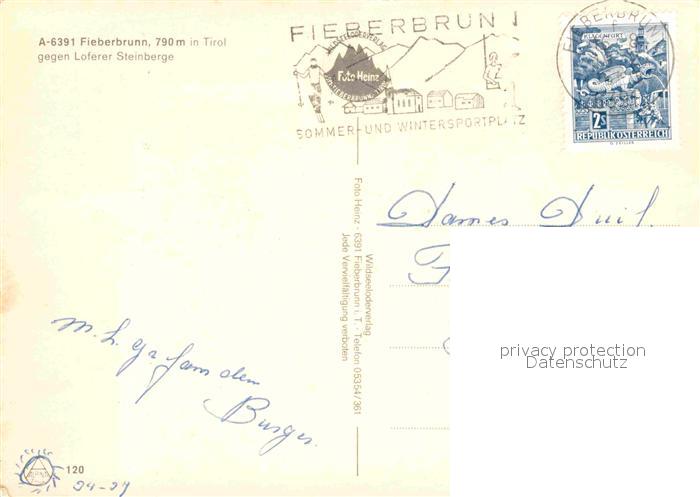 A-6391 Fieberbrunn, 790 m in Tirol
gegen Loferer Steinberge
FIEBERBRUNN
WILDSEELODERVERLAG
Foto Heinz
SOMMER- UND WINTERSPORTPLATZ
FIEBERBRUNN
KLAGENFURT
2S
REPUBLIK ÖSTERREICH
Wildseeloderverlag
Foto Heinz - 6391 Fieberbrunn i. T. - Telefon 05354/361
Jede Vervielfältigung verboten
m. h. Gr.
Burger.
privacy protection
Datenschutz
120
24-27